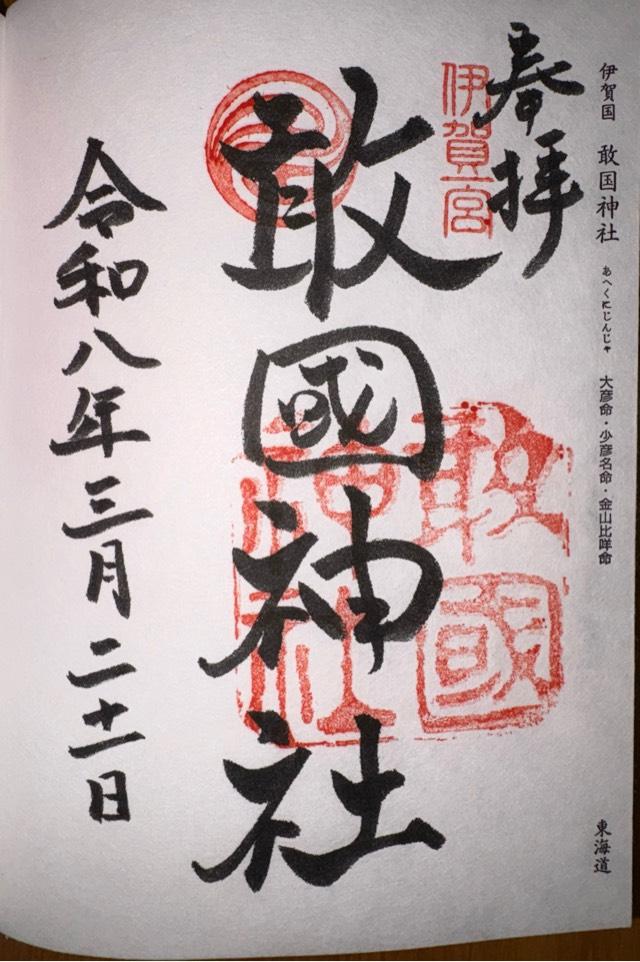 伊賀国 敢国神社 あへくにじんじゃ 大彦命・少彦名命・金山比咩命
東海道
奉拝
伊賀一宮
敢國神社
敢國神社
令和八年三月二十一日